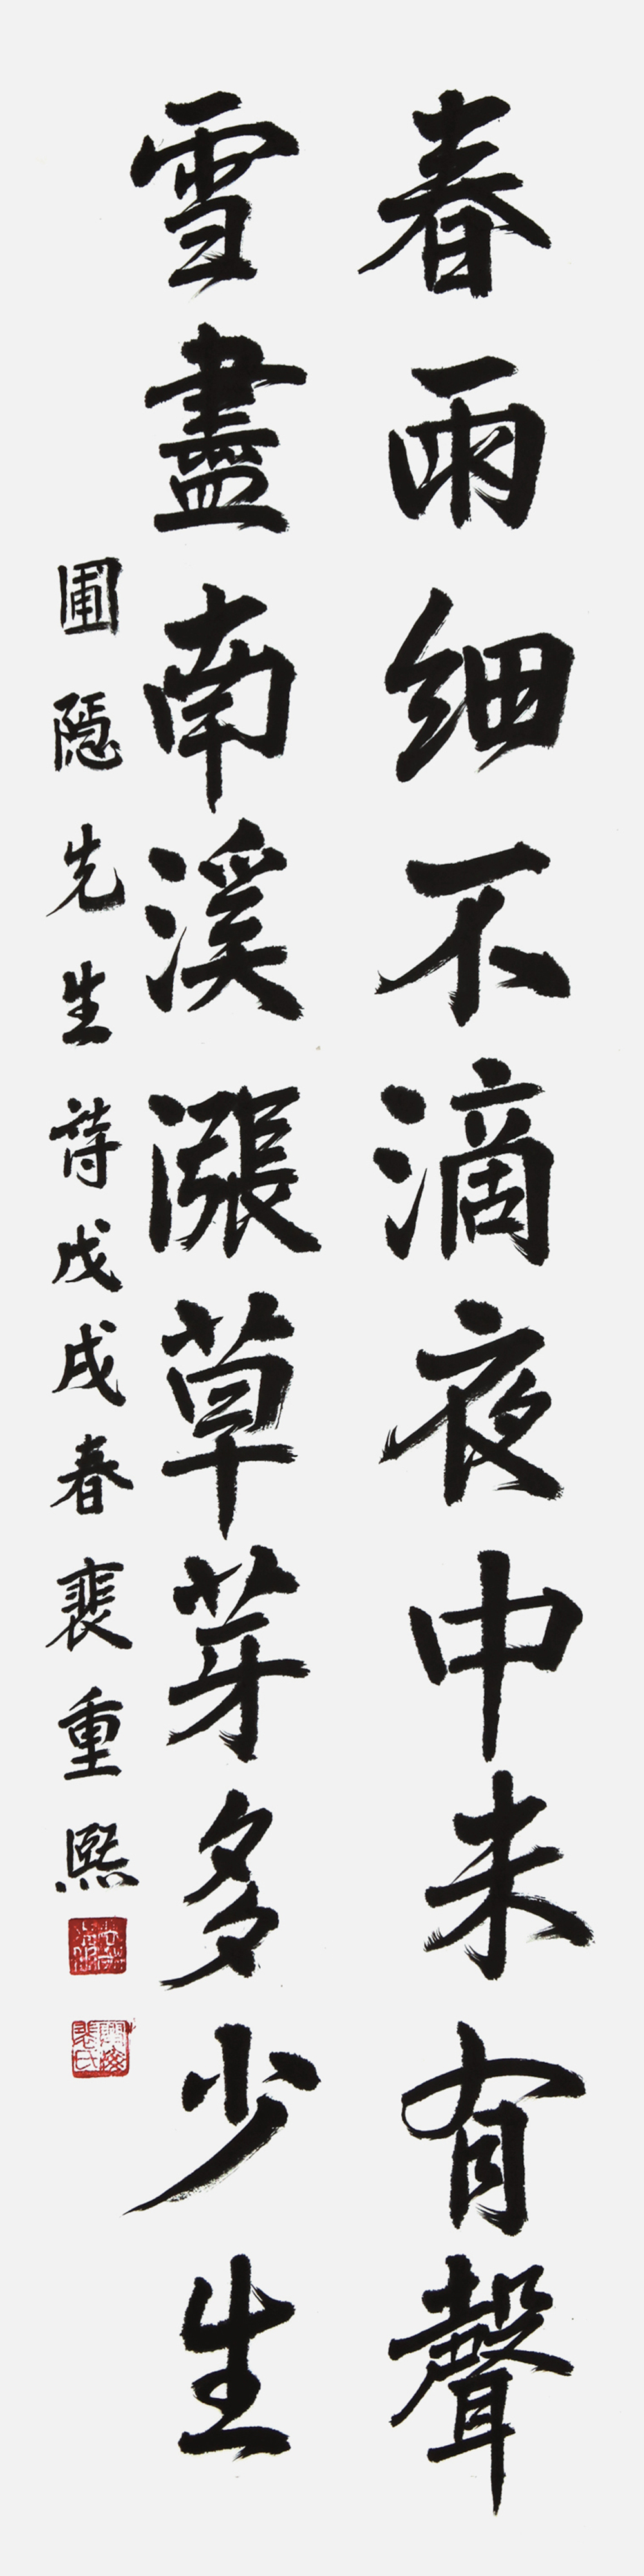 春雨細不滴夜中未有聲
雪盡南溪漲草芽多少生
圃隱先生詩戊戌春裵重熙